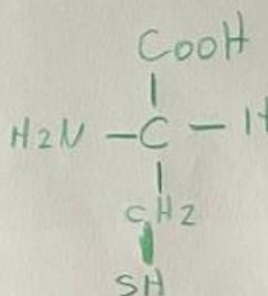 COOH
H2N - C - H
CH2
SH